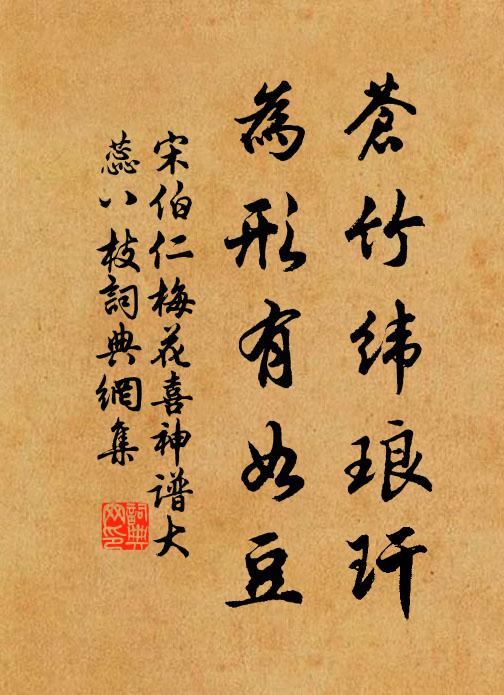 蒼竹緯琅玕
為形有如豆
宋伯仁梅花喜神谱大
蕊八枝詞典網集
詞典
网印